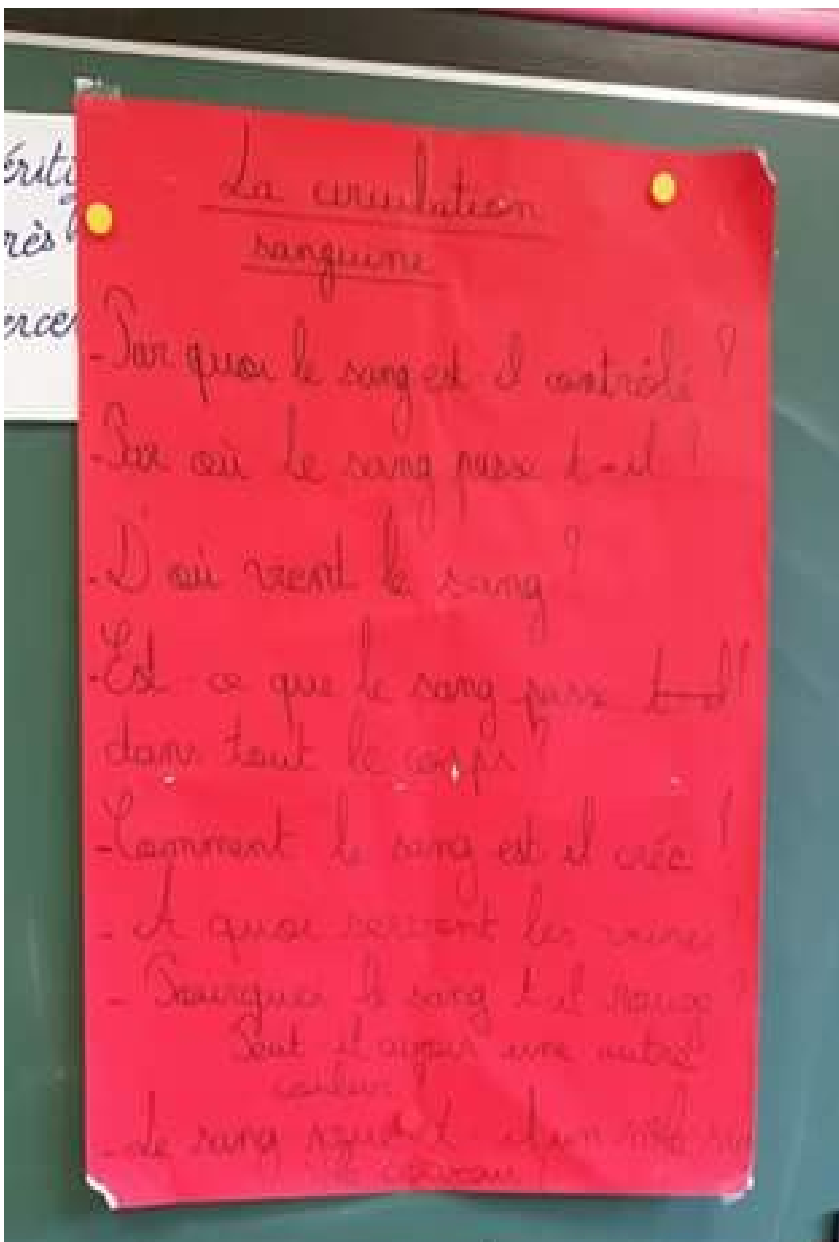 ériti
rès
erce
La circulation
sanguine
- Par quoi le sang est il contrôlé ?
- Par où le sang passe t-il ?
- D'où vient le sang ?
- Est-ce que le sang passe t-il
dans tout le corps ?
- Comment le sang est il créé ?
- A quoi servent les veines ?
- Pourquoi le sang t-il rouge ?
Peut il avoir une autre
couleur ?
- Le sang t-il un rôle
cerveau